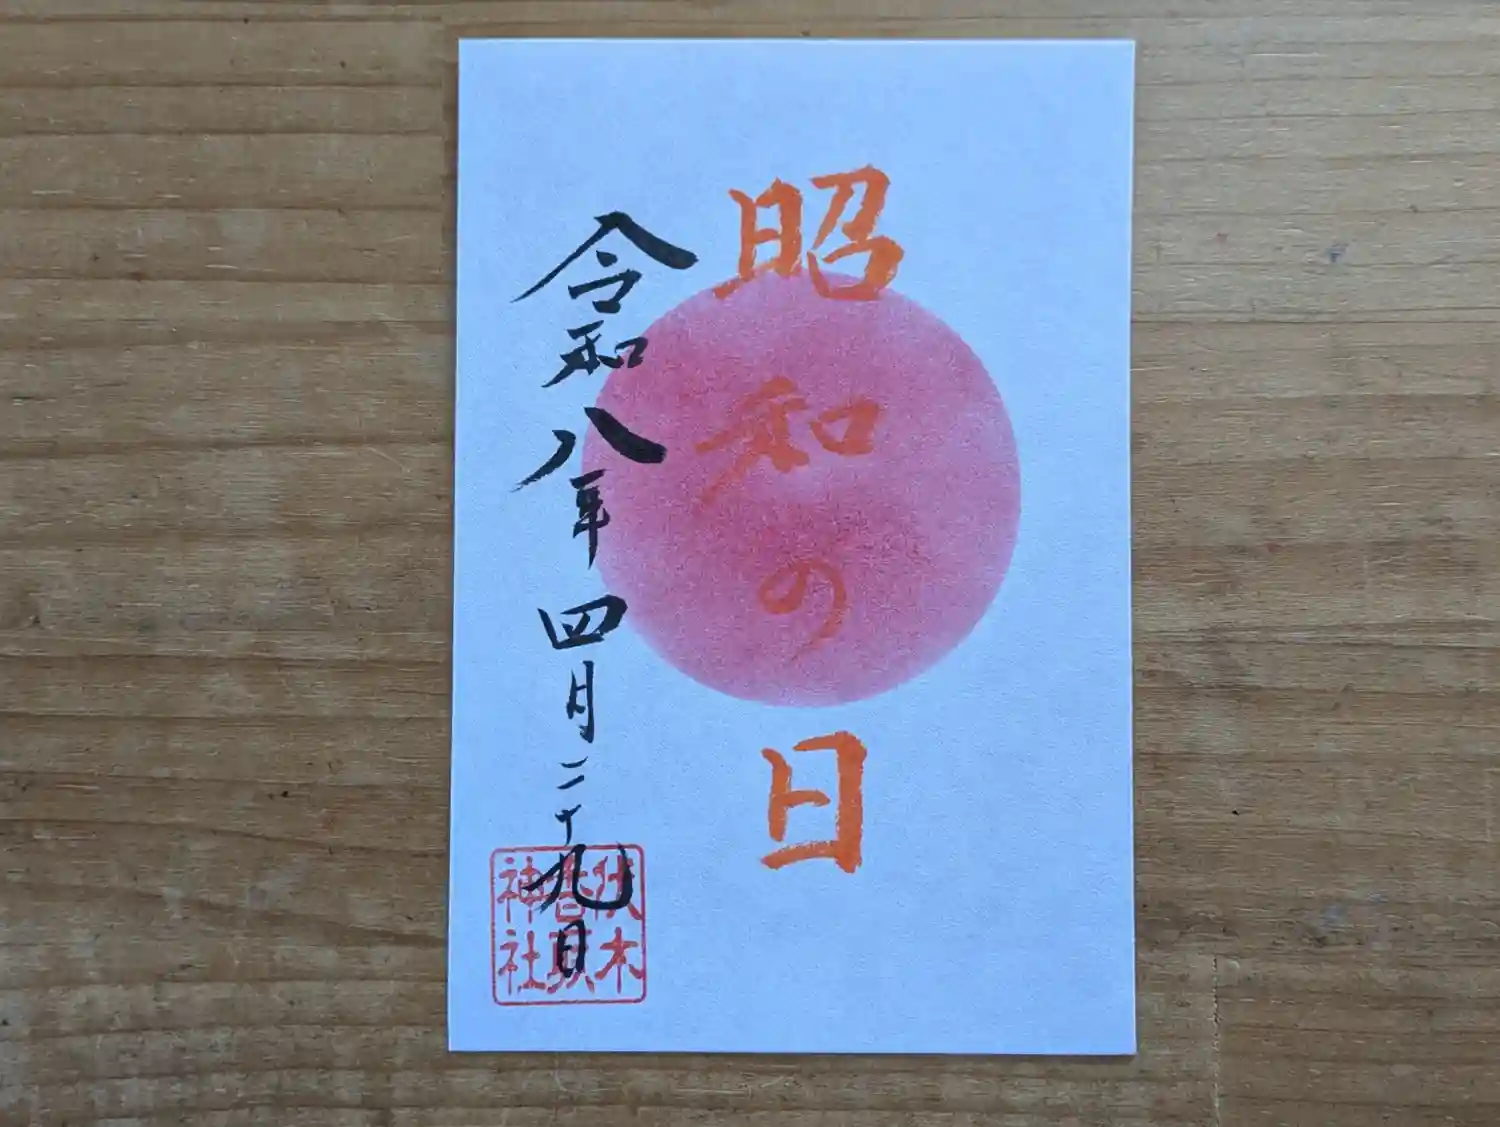 昭和の日
令和八年四月二十九日
伏木
香取
神社